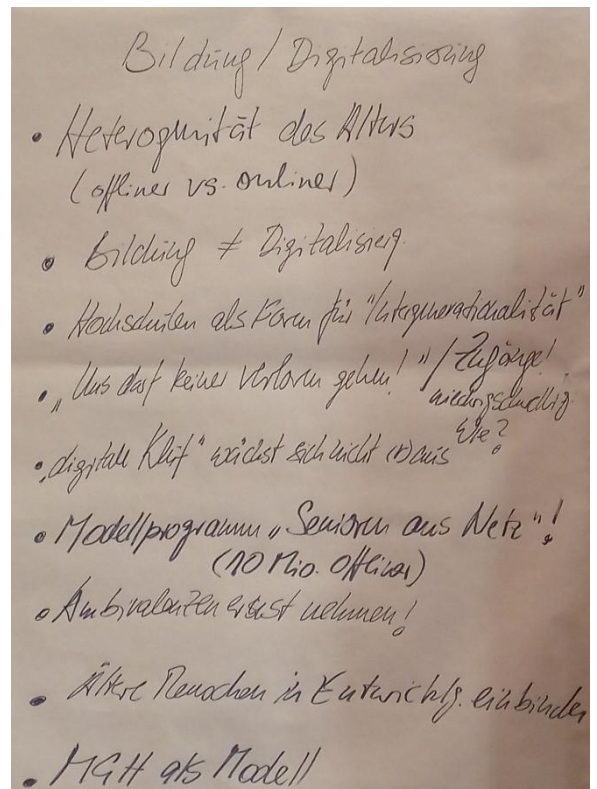 Bildung / Digitalisierung
• Heterogenität des Alters
(offliner vs. onliner)
• Bildung ≠ Digitalisierg.
• Hochschulen als Form für "Intergenerationalität"
• „Uns darf keiner verloren gehen!" / Zugänge!
niedrigschwellig
Wie?
• „digitale Kluft" wächst sich nicht (r)aus
• Modellprogramm „Senioren ans Netz"!
(10 Mio. Offliner)
• Ambivalenzen ernst nehmen!
• Ältere Menschen in Entwicklg. einbinden
• MGH als Modell